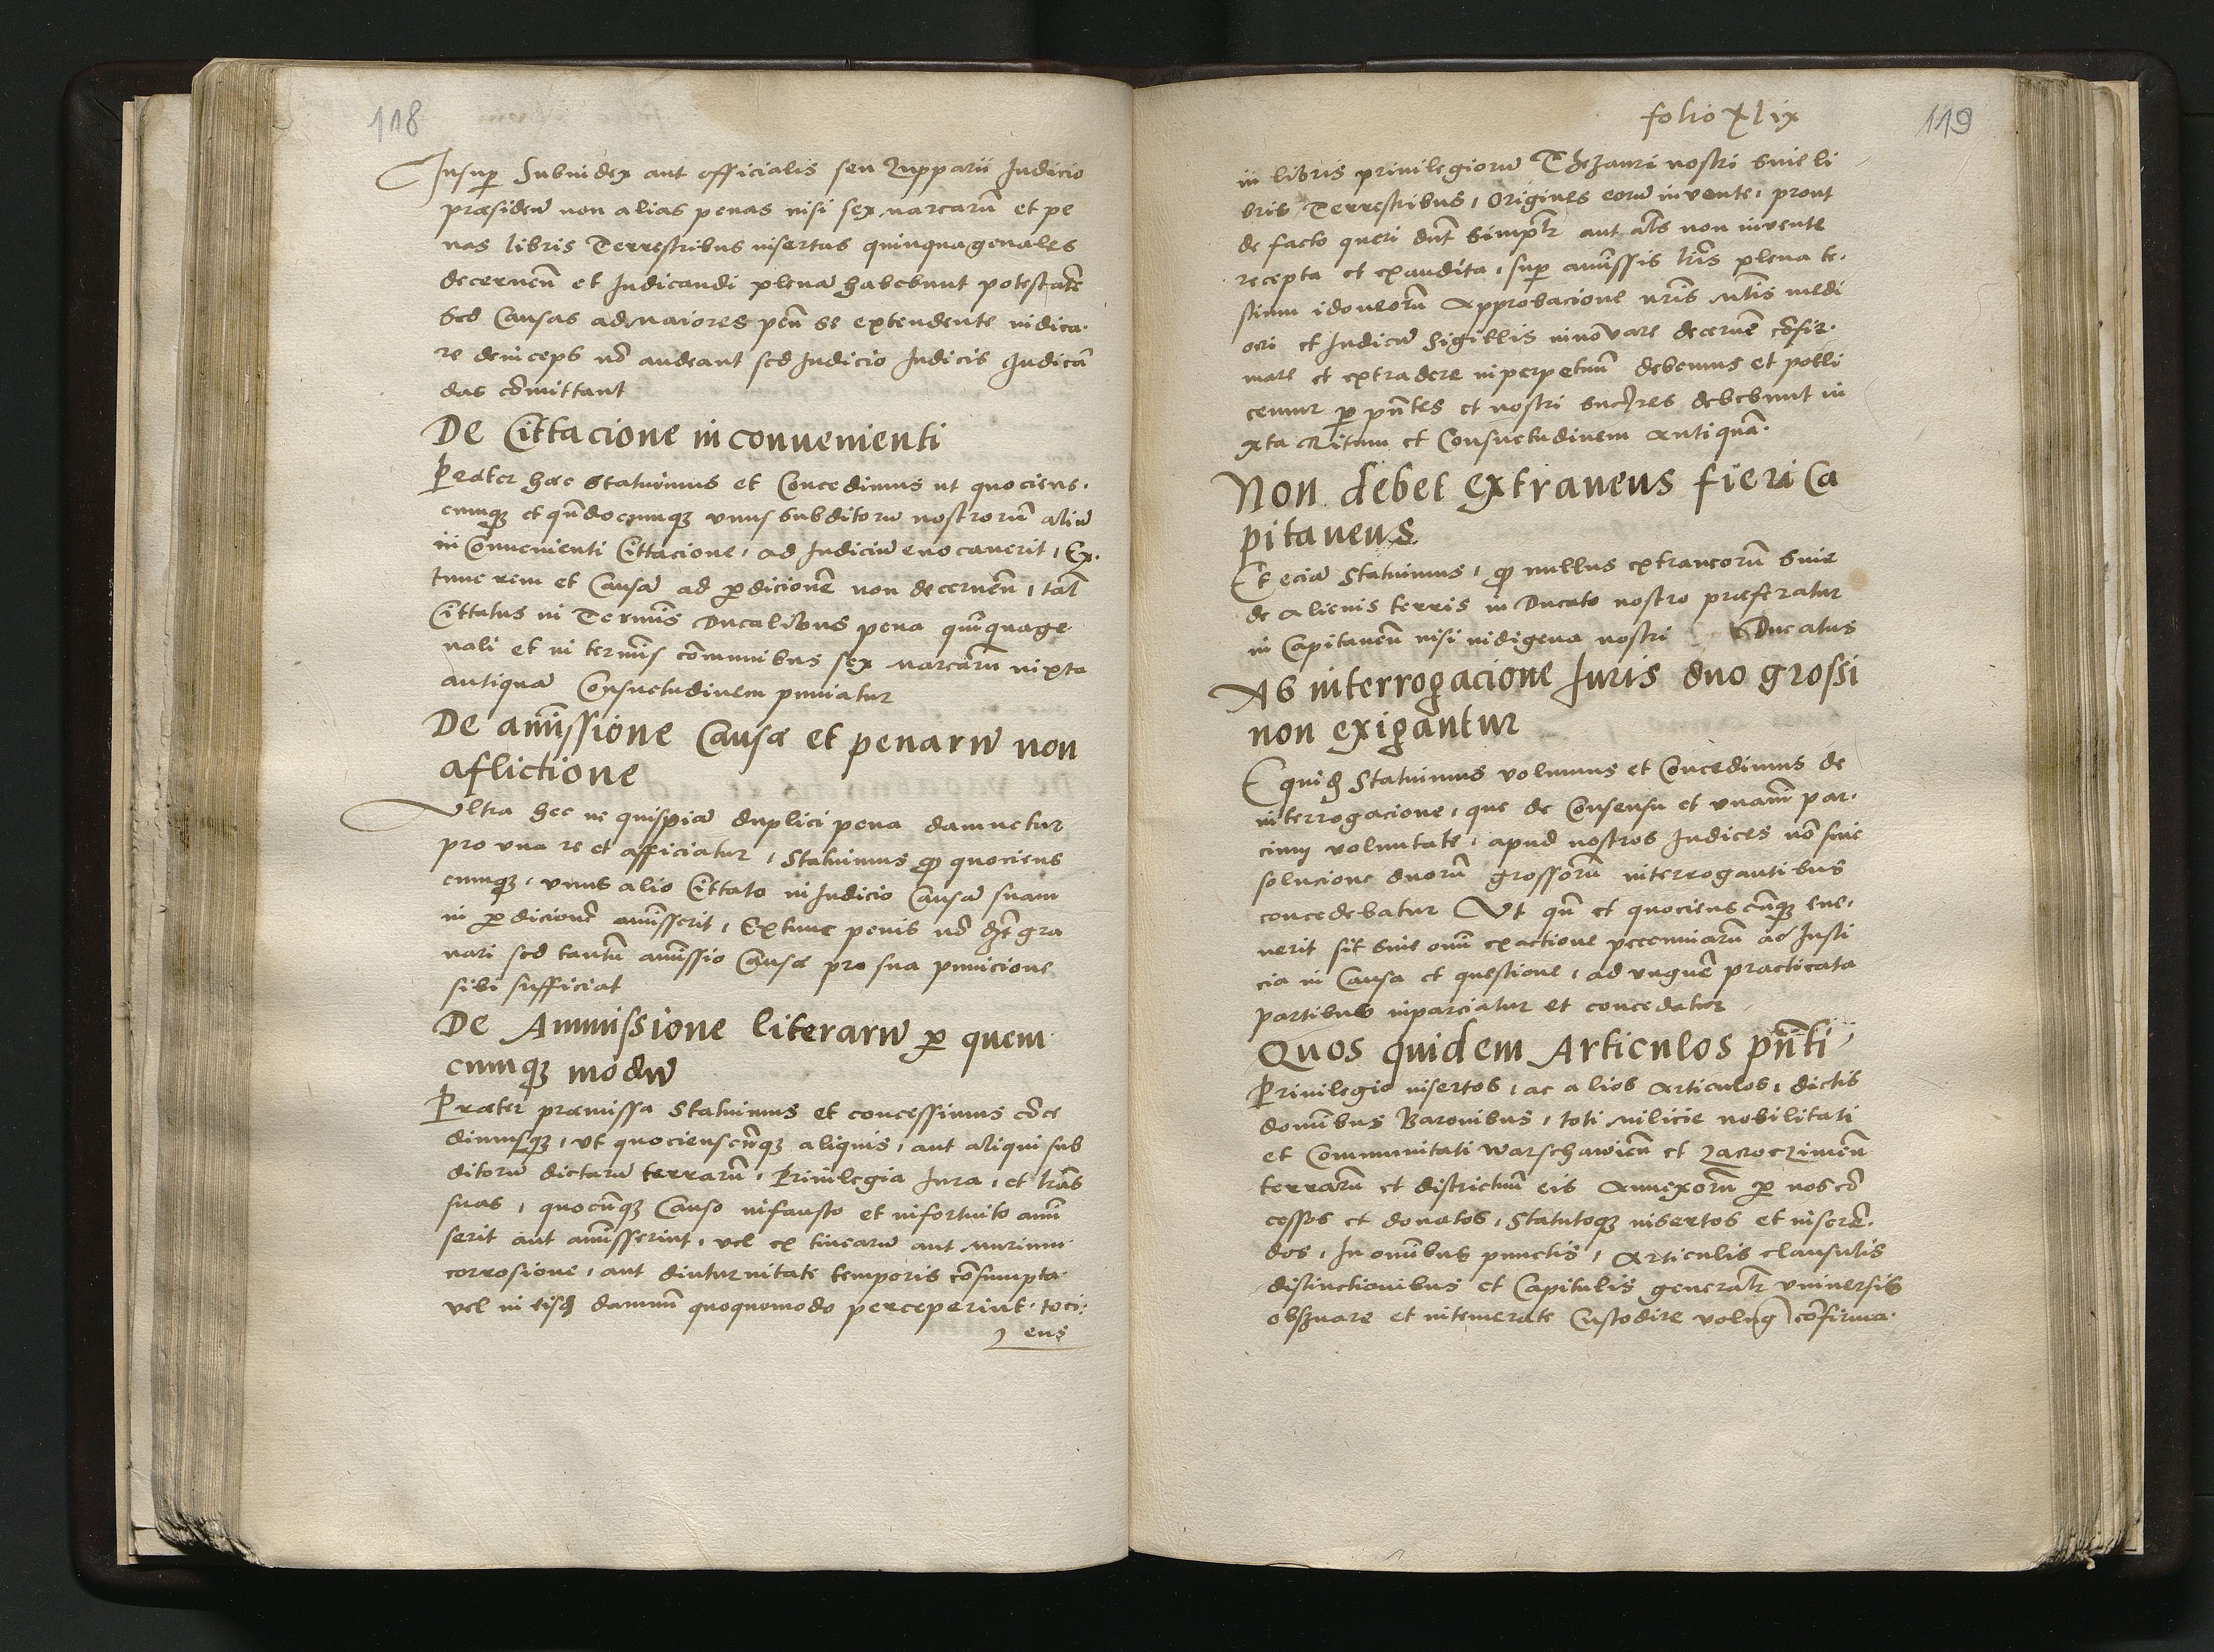 118
Insuꝑ Subiudex aut officialis seu Zupparii Iudicio
præsideñ non alias penas nisi sex marcarũ et pe
nas libris Terrestribus insertas quinquagenales
decerneñ et Iudicandi plenã habebunt potestatẽ
Sed Causas ad maiores peñ se extendente iudica.
re deinceps nõ audeant sed Iudicio Iudicis Iudicã
das cõmittant
De Cittacione inconuenienti
Præter hæc Statuimus et Concedimus ut quociens.
cumqꝫ et qñdocumqꝫ vnus Subditorũ nostrorũ aliũ
in Conuenienti Cittacione, ad Iudiciũ euocauerit, Ex.
tunc rem et Causã ad ꝑdicionẽ non decerneñ, tal̃
Cittatus in Termĩs Ducalibus pena quĩquage
nali et in termĩs cõmunibus sex marcarũ iuxta
antiquã Consuetudinem puniatur
De amĩssione Causæ et penarũ non
aflictione
Vltra hec ne quispiã duplici pena damnetur
pro vna re et afficiatur, Statuimus ꝙ quociens
cumqꝫ, vnus alio Cittato in Iudicio Causã suam
in ꝑdicionẽ amĩsserit, Extunc penis nõ dꝫt gra
uari sed tantũ amĩssio Causæ pro sua punicione
sibi sufficiat
De Ammissione literarũ ꝑ quem
cumqꝫ modũ
Præter præmissa Statuimus et concessimus cõce
dimusqꝫ, vt quocienscũqꝫ aliquis, aut aliqui sub
ditorũ dictarũ terrarũ, Priuilegia Iura, et lr̃as
suas, quocũqꝫ Causo infausto et infortuito amĩ
serit aut amĩsserint, vel ex tinearũ aut murium
corrosione, aut diuturnitate temporis cõsumpta.
vel in eisdꝫ damnũ quoquomodo perceperint. toci:
ens
folio xlix
119
in libris priuilegiorũ Thezauri nostri Siue li
bris Terrestribus, Origines eorũ inuente, prout
de facto queri dñt Simpłr aut alš non inuente
recepta et exaudita, suꝑ amĩssis lr̃is plena te.
stium idoneorũ Approbacione nr̃is Mtis medi
ocri et Iudicũ Sigillis innõvare decerneñ cõfir.
mare et extradere inperpetuũ debemus et polli
cemur ꝑ pñtes et nostri Suc̃res debebunt iu
xta Ritum et Consuetudinem Antiquã.
Non debet extraneus fieri Ca
pitaneus
Et eciã Statuimus, ꝙ nullus extraneorũ Siue
de Alienis terris in Ducato nostro præferatur
in Capitaneũ nisi indigena nostri Ducatus
Ab interrogacione Iuris duo grossi
non exigantur
Equidꝫ Statuimus volumus et Concedimus de
interrogacione, que de Consensu et vnanĩ par.
cium voluntate, apud nostros Iudices nõ sine
solucione duorũ grossorũ interrogantibus
concedebatur Vt qñ et quocienscũqꝫ eue,
nerit sit Sine omĩ exactione peccuniarũ ad Iusti
cia in Causa et questione, ad vnguẽ practicata
partibus inparciatur et concedatur
Quos quidem Articulos pñti
Priuilegio insertos, ac alios Articulos, dictis
domĩbus Baronibus, toti milicie nobilitati
et Communitati Warschawieñ et Zacrocziméñ
terrarũ et districtuũ eis Annexorũ ꝑ nos cõ
cessos et donatos, Statutoqꝫ insertos et inserẽ.
dos, In omĩbus punctis, Articulis clausulis
distinctionibus et Capitulis generałr vniuersis
obseruare et intemerate Custodire confirma.